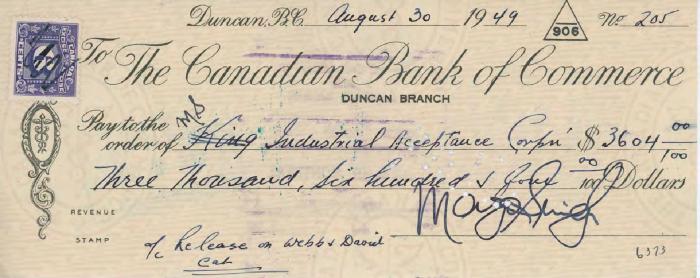 Duncan, B.C. August 30 1949 906 No 205
To The Canadian Bank of Commerce
DUNCAN BRANCH
Pay to the order of King Industrial Acceptance Corpn' $3604 00/100
Three Thousand, Six hundred & four 00/100 Dollars
REVENUE
STAMP
a/c Release on Webb & David
Cat
6373